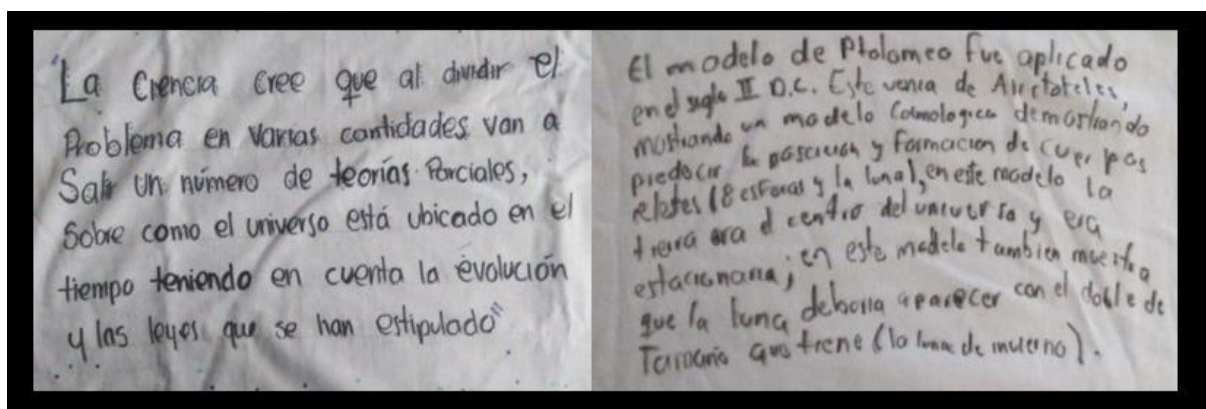 "La Ciencia cree que al dividir el
Problema en varias cantidades van a
Salir un número de teorías Parciales,
Sobre como el universo está ubicado en el
tiempo teniendo en cuenta la evolución
y las leyes que se han estipulado"
El modelo de Ptolomeo fue aplicado
en el siglo II D.C. Este venia de Aristoteles,
mostrando un modelo Cosmologico demostrando
predecir la posicion y formacion de cuerpos
(8 esferas y la luna), en este modelo la
tierra era el centro del universo y era
estacionaria; en este modelo tambien muestra
que la luna deberia aparecer con el doble de
Tamaño que tiene (la luna de).